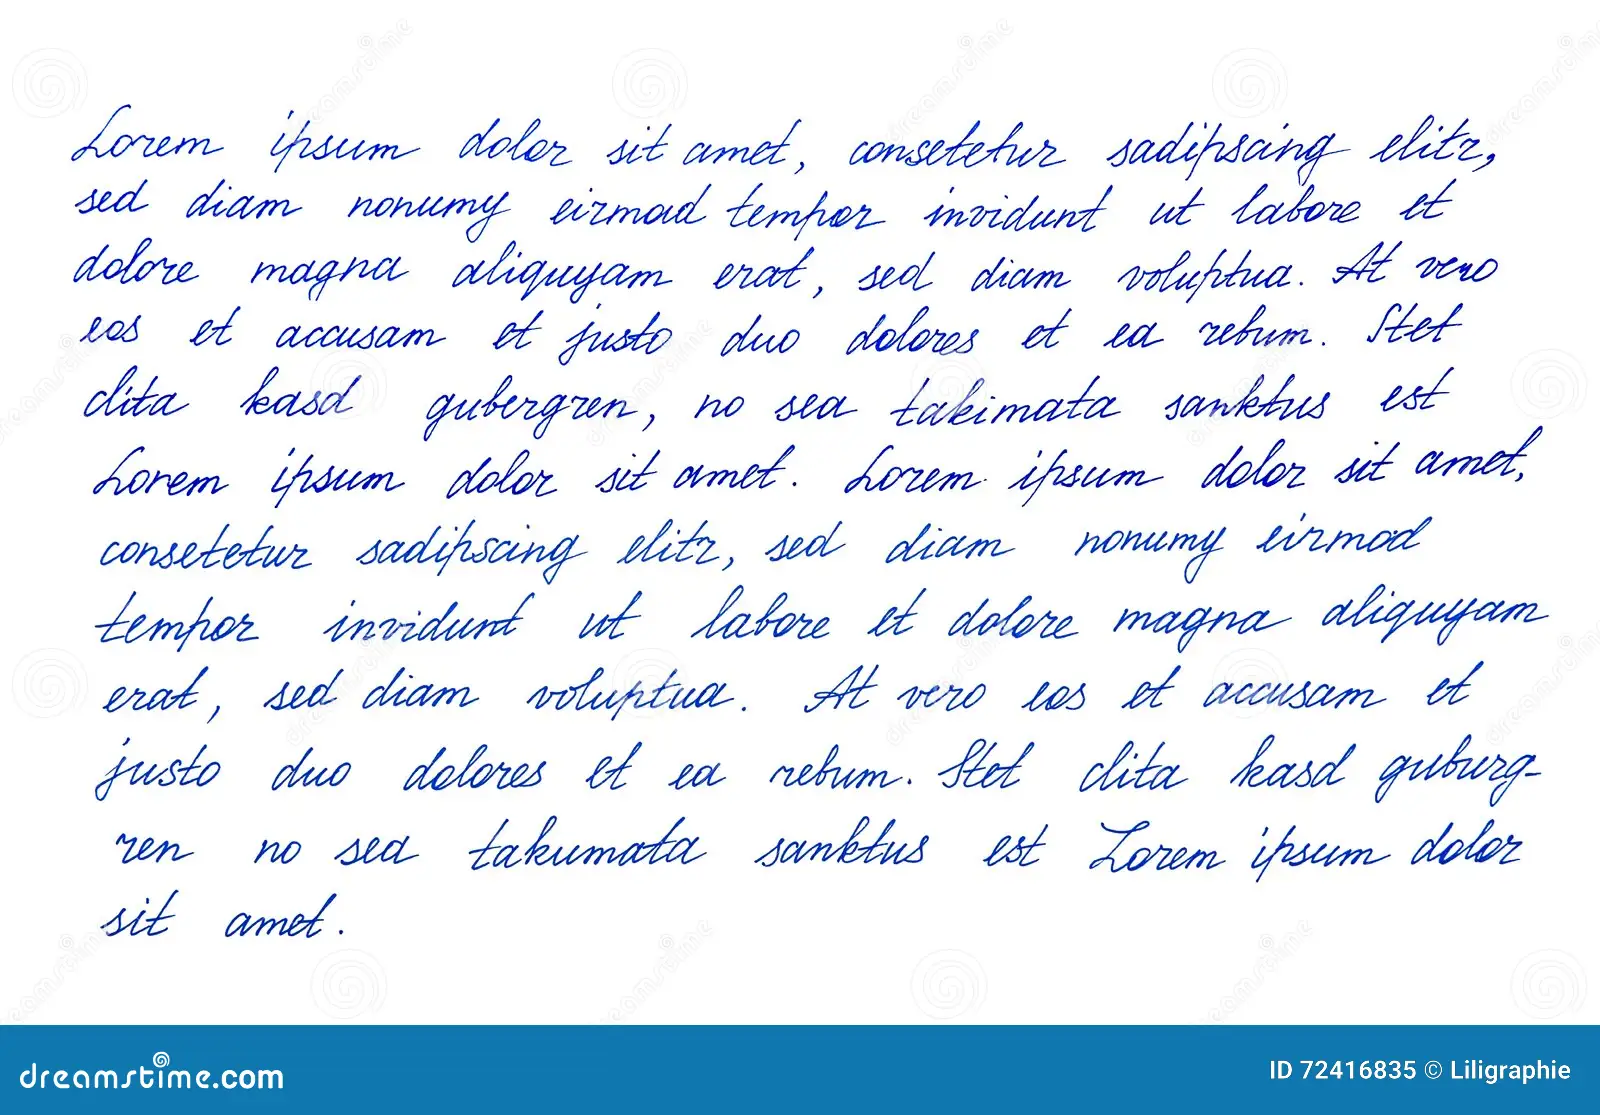 Lorem ipsum dolor sit amet, consetetur sadipscing elitr,
sed diam nonumy eirmod tempor invidunt ut labore et
dolore magna aliquyam erat, sed diam voluptua. At vero
eos et accusam et justo duo dolores et ea rebum. Stet
clita kasd gubergren, no sea takimata sanktus est
Lorem ipsum dolor sit amet. Lorem ipsum dolor sit amet,
consetetur sadipscing elitr, sed diam nonumy eirmod
tempor invidunt ut labore et dolore magna aliquyam
erat, sed diam voluptua. At vero eos et accusam et
justo duo dolores et ea rebum. Stet clita kasd guburg-
ren no sea takumata sanktus est Lorem ipsum dolor
sit amet.
dreamstime.com
ID 72416835 © Liligraphie